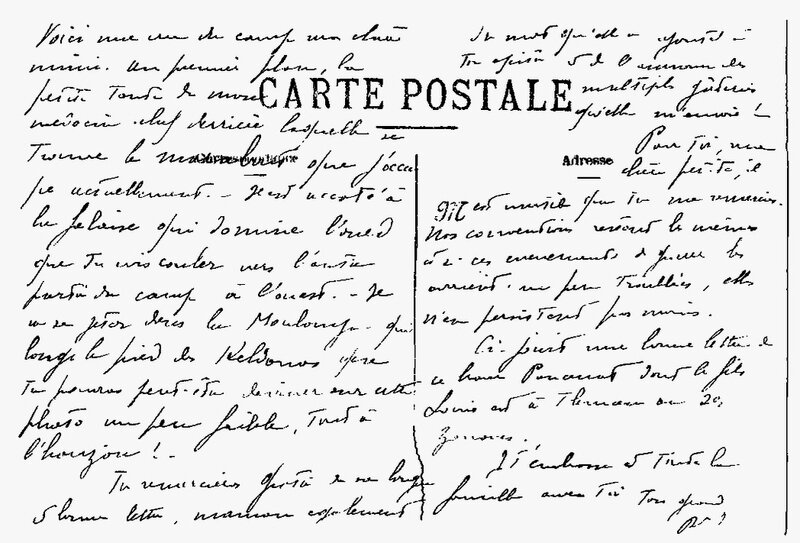 Voici une vue du camp ma chère
mimi. Au premier plan, la
petite tente de mon
médecin chef derrière laquelle se
trouve le que j'occu
pe actuellement. - Il est accoté à
la falaise qui domine l'oued
que tu vois couler vers l'autre
partie du camp à l'ouest. - Il
va se jeter dans la Moulouya qui
longe le pied des Kebdanas que
tu pourras peut-être deviner sur cette
photo un peu faible, tout à
l'horizon ! -
Tu remercieras de sa longue
& bonne lettre, maman également
CARTE POSTALE
Correspondance
Adresse
du mot qu'elle a ajouté à
& de l'annonce des
multiples
qu'elle m'envoie !
Pour toi, ma
chère petite, il
M est inutile que tu me remercies.
Nos conventions restent les mêmes
& si ces évènements de guerre les
arrivent un peu troublées, elles
n'en persistent pas moins.
Ci-joint une bonne lettre de
ce brave dont le fils
Louis est à Tlemcen au 2e
zouaves.
Je t'embrasse & toute la
famille avec toi Ton grand